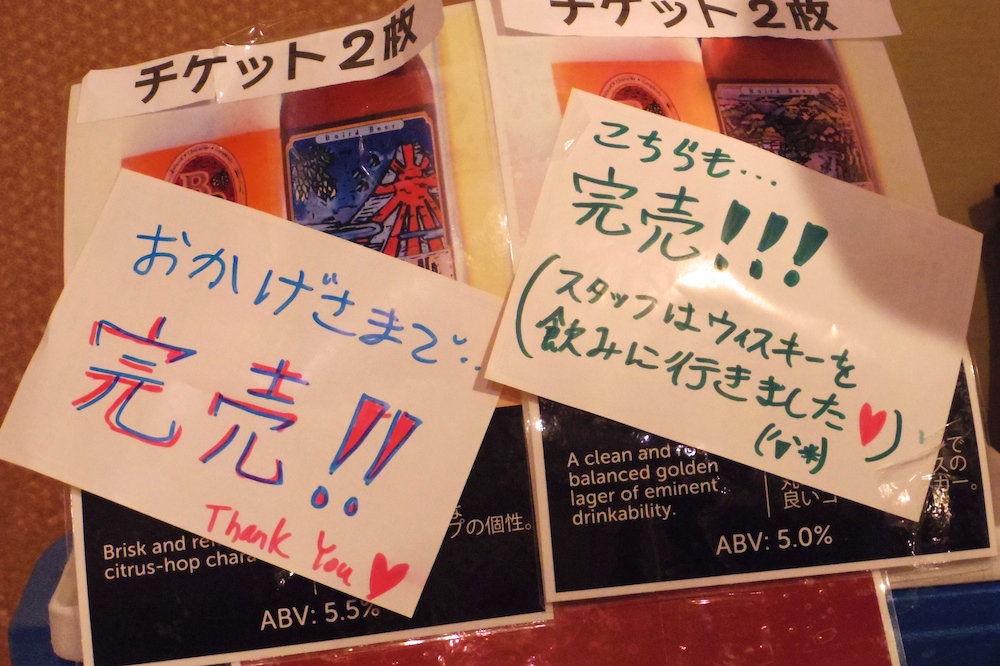 チケット2枚
チケット2枚
Baird Beer
おかげさまで…
完売!!
Thank You ♥
こちらも…
完売!!!
(スタッフはウィスキーを
飲みに行きました♥)
Brisk and
citrus-hop
プの個性。
ABV: 5.5%
A clean and
balanced golden
lager of eminent
drinkability.
良いゴ
ABV: 5.0%